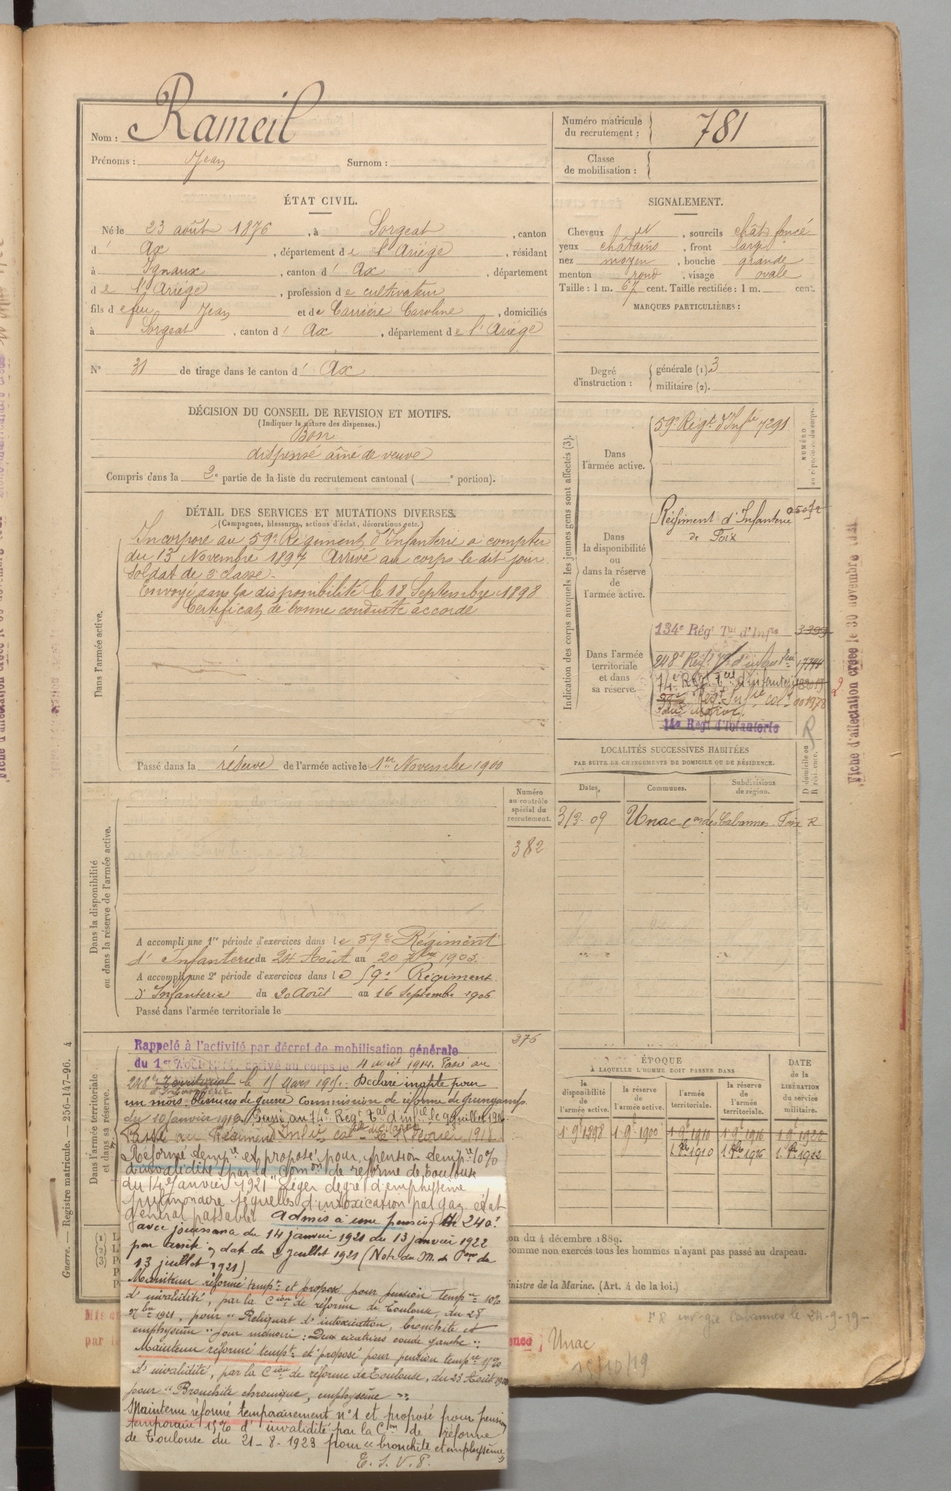 Nom : Rameil
Prénoms : Jean Surnom :
Numéro matricule du recrutement : 781
Classe de mobilisation :
ÉTAT CIVIL.
Né le 23 août 1876, à Sorgeat, canton
d' Ax, département de l'Ariège, résidant
à Ignaux, canton d' Ax, département
de l'Ariège, profession de cultivateur
fils de feu Jean et de Carrière Caroline, domiciliés
à Sorgeat, canton d' Ax, département de l'Ariège
N° 31 de tirage dans le canton d' Ax
SIGNALEMENT.
Cheveux et, sourcils chât. foncé
yeux châtains, front large
nez moyen, bouche grande
menton rond, visage ovale
Taille : 1 m. 67 cent. Taille rectifiée : 1 m. cent.
MARQUES PARTICULIÈRES :
Degré d'instruction : générale (1). 3
militaire (2).
DÉCISION DU CONSEIL DE REVISION ET MOTIFS.
(Indiquer la nature des dispenses.)
Bon
dispensé aîné de veuve
Compris dans la 2e partie de la liste du recrutement cantonal ( e portion).
DÉTAIL DES SERVICES ET MUTATIONS DIVERSES.
(Campagnes, blessures, actions d'éclat, décorations, etc.)
Dans l'armée active.
Incorporé au 59e Régiment d'Infanterie à compter
du 13 Novembre 1897 Arrivé au corps le dit jour
Soldat de 2e classe.
Envoyé dans la disponibilité le 18 Septembre 1898
Certificat de bonne conduite accordé
Passé dans la réserve de l'armée active le 1er Novembre 1900
Indication des corps auxquels les jeunes gens sont affectés (3).
Dans l'armée active.
59e Régt d'Infie 7291
Dans la disponibilité ou dans la réserve de l'armée active.
Régiment d'Infanterie
de Foix
Dans l'armée territoriale et dans sa réserve.
134e Régt Tal d'Infie
248e Régt
14e Régt d'Infanterie
LOCALITÉS SUCCESSIVES HABITÉES
PAR SUITE DE CHANGEMENTS DE DOMICILE OU DE RÉSIDENCE.
Dates. Communes. Subdivisions de région. D domicile ou R résidence.
3/3.09 Unac con des Cabannes Foix R
Fiche d'affectation créée le 30 novembre
Dans la disponibilité ou dans la réserve de l'armée active.
Numéro au contrôle spécial du recrutement.
382
A accompli une 1re période d'exercices dans le 59e Régiment
d'Infanterie du 24 Août au 20 7bre 1903.
A accompli une 2e période d'exercices dans le 59e Régiment
d'Infanterie du 20 Août au 16 Septembre 1906
Passé dans l'armée territoriale le
376
Dans l'armée territoriale et dans sa réserve.
Rappelé à l'activité par décret de mobilisation générale
du 1er Août 1914, arrivé au corps le 4 août 1914. Passé au
248e Territorial le 15 Mars 1915. Déclaré inapte pour
un mois blessures de guerre commission de réforme de guingamp
du 10 janvier 1918. Passé au 14e Régt Tal d'Inf. le 9 juillet
Passé au Régiment
Réformé tempre et proposé pour pension tempre 10%
d'invalidité par la Comon de réforme de Toulouse
du 14 Janvier 1921 "léger degré d'emphysème
pulmonaire séquelles d'intoxication par gaz état
général passable. Admis à une pension de 240f
avec jouissance du 14 janvier 1921 au 13 janvier 1922
par arrêté en dat du 2 juillet 1921 (Note du M. des Pens du
13 juillet 1921)
Maintenu réformé tempre et proposé pour pension tempre 10%
d'invalidité, par la Cion de réforme de Toulouse, du 28
Xbre 1921, pour "Reliquat d'intoxication, bronchite et
emphysème" pour mémoire : Deux cicatrices coude gauche".
Maintenu réformé tempre et proposé pour pension tempre
d'invalidité, par la Cion de réforme de Toulouse, du 23 Août
pour "Bronchite chronique, emphysème"
Maintenu réformé temporairement n°1 et proposé pour pension
temporaire 15% d'invalidité par la Cion de réforme
de Toulouse du 21-8-1923 pour "bronchite et emphysème"
E. S. V. P.
ÉPOQUE
À LAQUELLE L'HOMME DOIT PASSER DANS
la disponibilité de l'armée active. la réserve de l'armée active. l'armée territoriale. la réserve de l'armée territoriale.
DATE de la LIBÉRATION du service militaire.
1.9bre 1898 1.9bre 1900 1.9bre 1910 1.9bre 1916 1.9bre 1922
1.8bre 1910
du 4 décembre 1889.
comme non exercés tous les hommes n'ayant pas passé au drapeau.
Ministre de la Marine. (Art. 4 de la loi.)
Unac
Guerre. — Registre matricule. — 250-147-96. 4